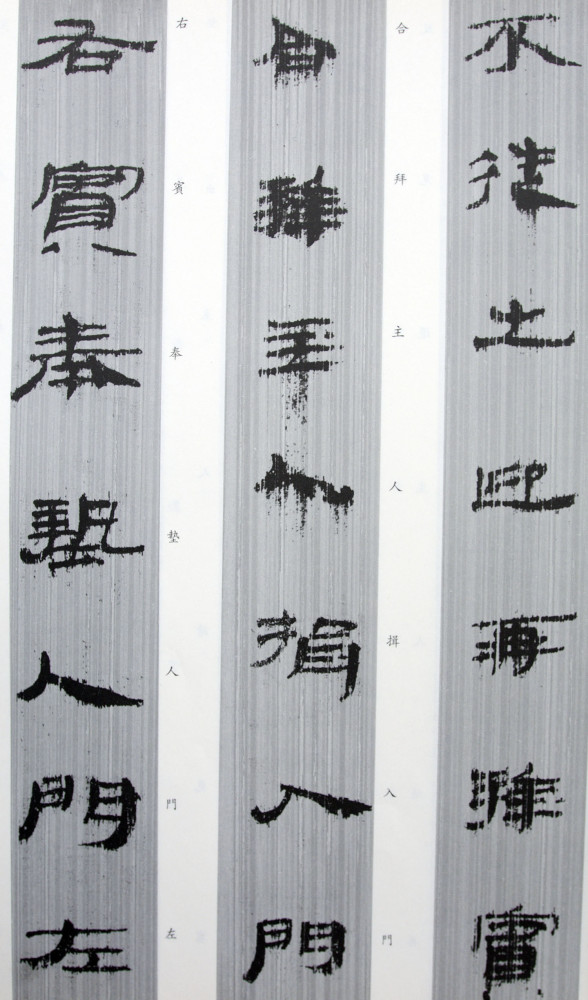 不從出迎再拜賓
合拜主人揖入門
合拜主人揖入門
右賓奉墊入門左
右賓奉墊人門左